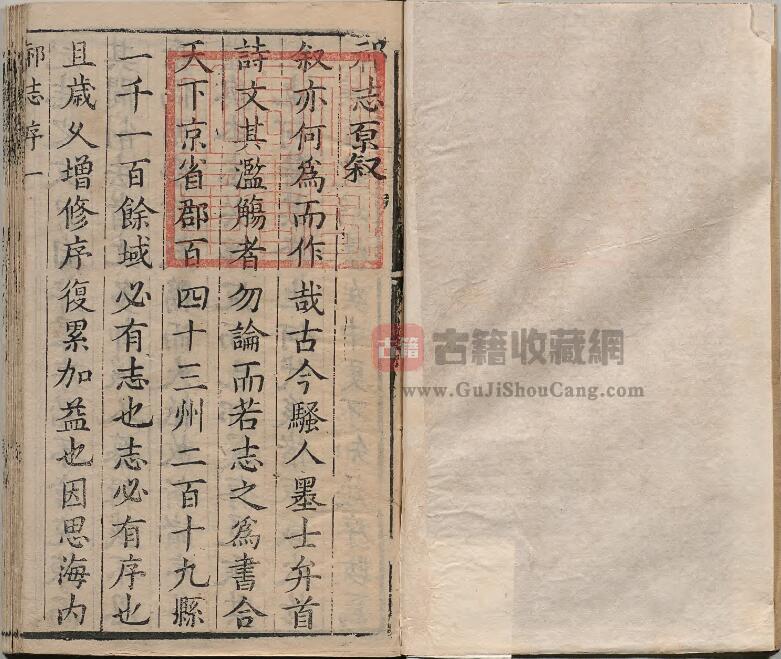 祁志原叙
叙亦何為而作哉古今騷人墨士弁首
詩文其濫觴者勿論而若志之為書合
天下京省郡百四十三州二百十九縣
一千一百餘域必有志也志必有序也
且歲久增修序復累加益也因思海内
祁志序一
古籍
古籍收藏網
www.GuJiShouCang.com